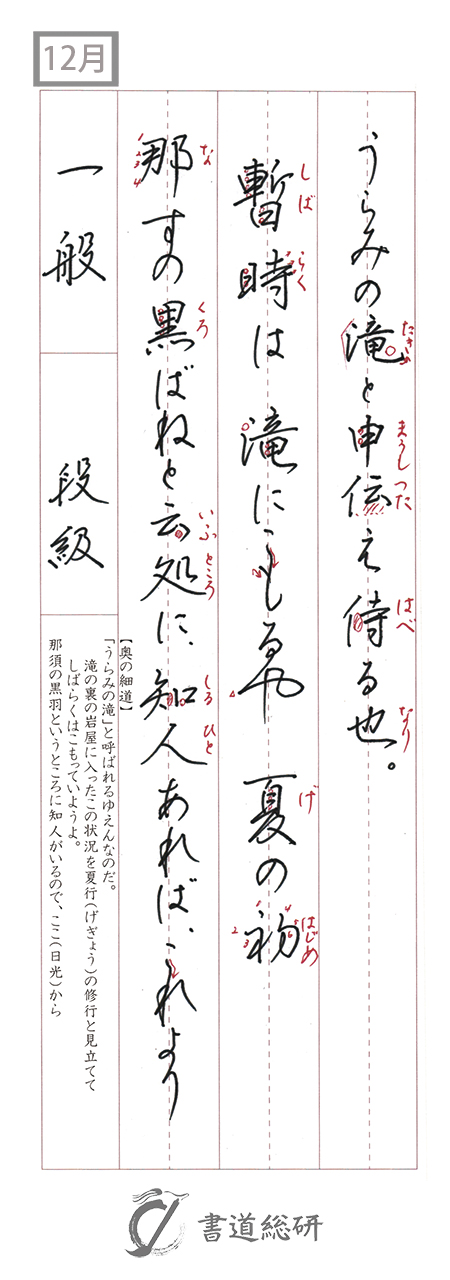 12月
うらみの滝と申伝え侍る也。
たきと
まうし
つた
はべ
なり
暫時は滝にこもるや 夏の初
しば
らく
げ
はじめ
那すの黒ばねと云処に、知人あれば、これより
な
くろ
いふ
ところ
しる
ひと
一般
段級
【奥の細道】
「うらみの滝」と呼ばれるゆえんなのだ。
滝の裏の岩屋に入ったこの状況を夏行(げぎょう)の修行と見立てて
しばらくはこもっていようよ。
那須の黒羽というところに知人がいるので、ここ(日光)から
書道総研